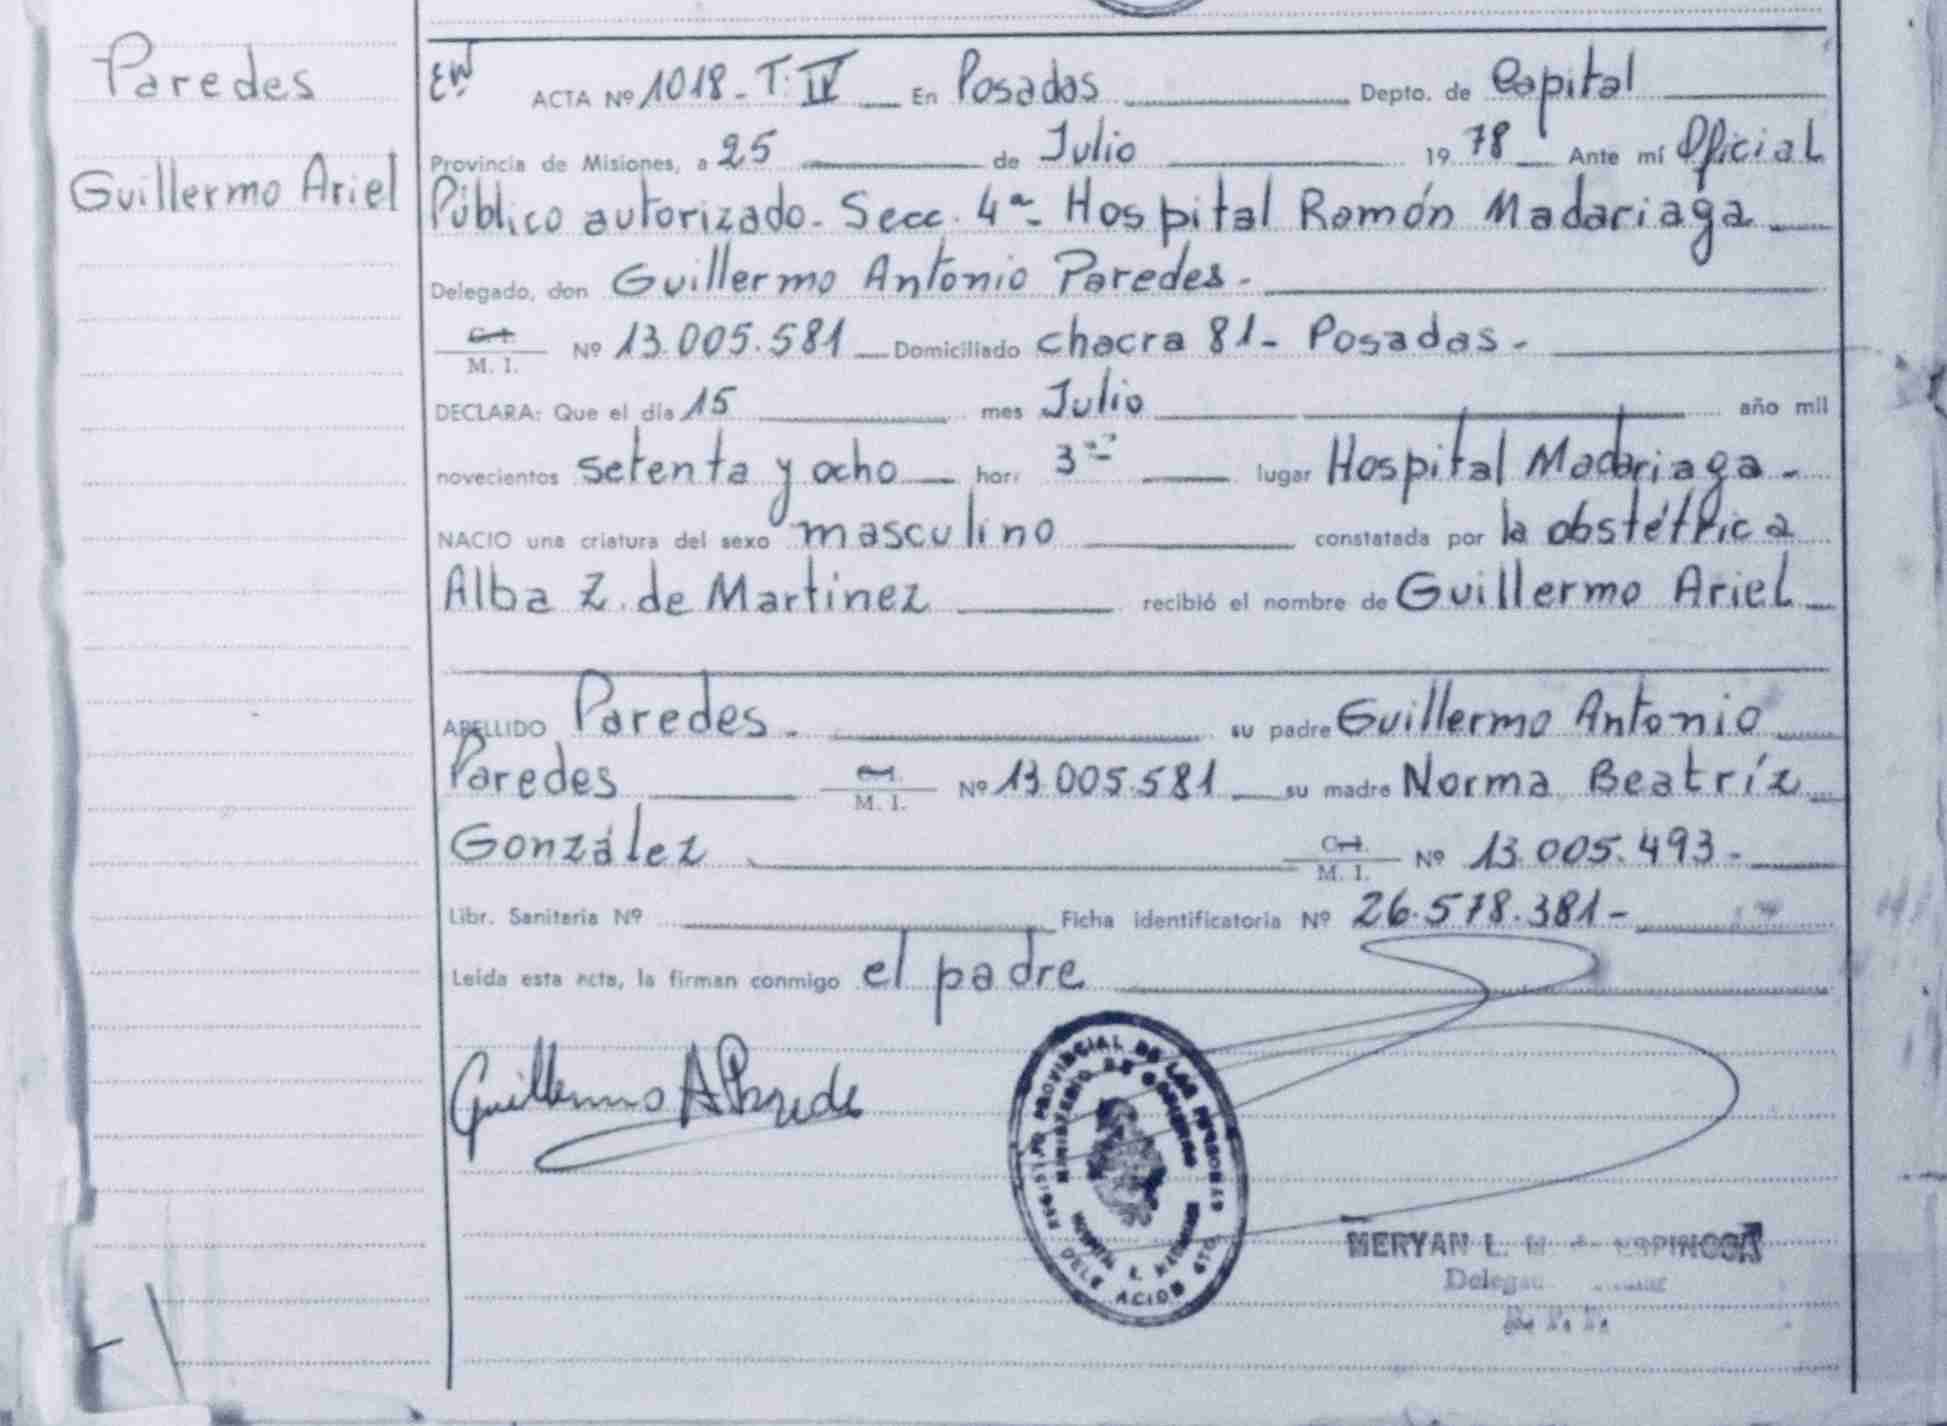 Paredes
Guillermo Ariel
ACTA Nº 1018 - T. IV En Posadas Depto. de Capital
Provincia de Misiones, a 25 de Julio 1978 Ante mí Oficial
Público autorizado - Secc. 4ª - Hospital Ramón Madariaga
Delegado, don Guillermo Antonio Paredes -
C. I.
M. I. Nº 13.005.581 Domiciliado chacra 81 - Posadas -
DECLARA: Que el día 15 mes Julio año mil
novecientos setenta y ocho hora 3 lugar Hospital Madariaga -
NACIO una criatura del sexo masculino constatada por la obstétrica
Alba Z. de Martinez recibió el nombre de Guillermo Ariel
APELLIDO Paredes - su padre Guillermo Antonio
Paredes C. I.
M. I. Nº 13.005.581 su madre Norma Beatríz
González C. I.
M. I. Nº 13.005.493 -
Libr. Sanitaria Nº Ficha identificatoria Nº 26.578.381 -
Leída esta acta, la firman conmigo el padre
Guillermo A Parede
REGISTRO PROVINCIAL DE LAS PERSONAS
MINISTERIO DE GOBIERNO
MERYAN L. ESPINOSA